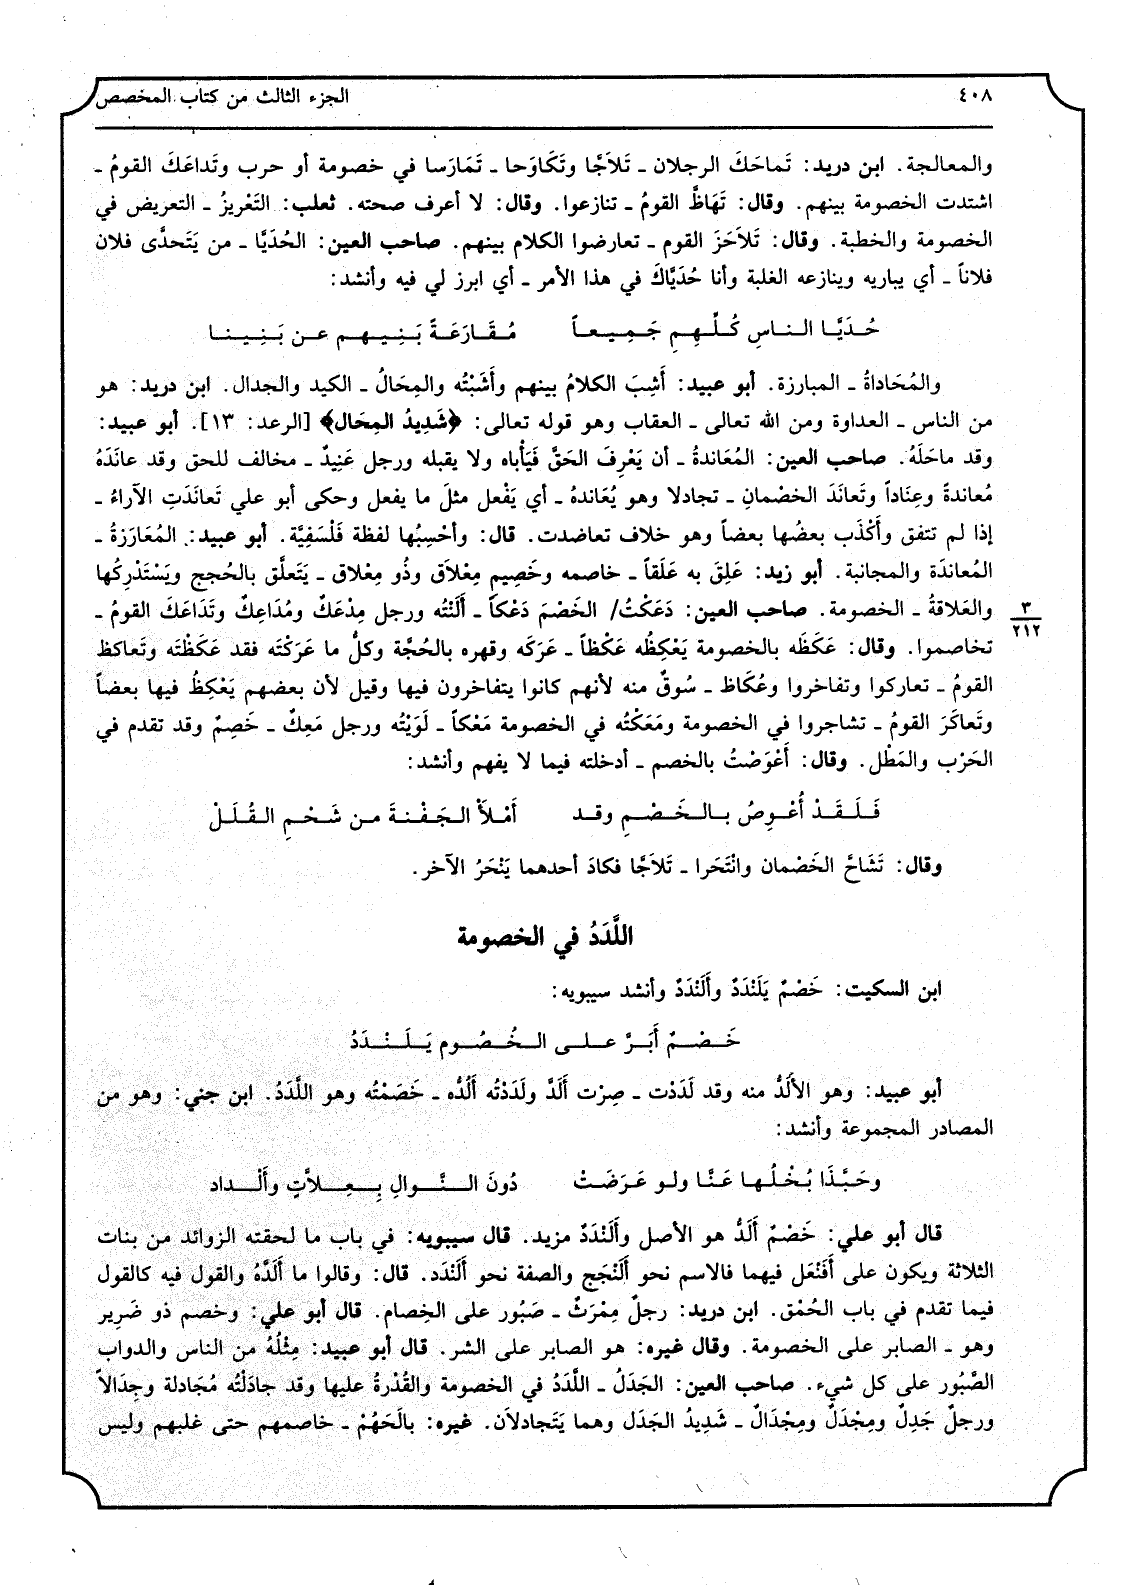 ٤٠٨ الجزء الثالث من كتاب المخصص
والمعالجة. ابن دريد: تَماحَكَ الرجلان ـ تَلاَجَّا وتَكَاوَحا ـ تَمَارَسا في خصومة أو حرب وتَداعَكَ القومُ ـ
اشتدت الخصومة بينهم. وقال: تَهَاظَّ القومُ ـ تنازعوا. وقال: لا أعرف صحته. ثعلب: التَعْريزُ ـ التعريض في
الخصومة والخطبة. وقال: تَلاَحَزَ القوم ـ تعارضوا الكلام بينهم. صاحب العين: الحُدَيَّا ـ من يَتَحدَّى فلان
فلاناً ـ أي يباريه وينازعه الغلبة وأنا حُدَيَّاكَ في هذا الأمر ـ أي ابرز لي فيه وأنشد:
حُدَيَّا الناسِ كُلِّهِمِ جَمِيعاً مُقَارَعَةً بَنِيهِم عن بَنِينا
والمُحَاداةُ ـ المبارزة. أبو عبيد: أَشِبَ الكلامُ بينهم وأَشَبْتُه والمِحَالُ ـ الكيد والجدال. ابن دريد: هو
من الناس ـ العداوة ومن الله تعالى ـ العقاب وهو قوله تعالى: ﴿شَدِيدُ المِحَال﴾ [الرعد: ١٣]. أبو عبيد:
وقد ماحَلَهُ. صاحب العين: المُعَاندةُ ـ أن يَعْرِفَ الحَقَّ فَيَأْباه ولا يقبله ورجل عَنِيدٌ ـ مخالف للحق وقد عانَدَهُ
مُعاندةً وعِنَاداً وتَعانَدَ الخصْمانِ ـ تجادلا وهو يُعَاندهُ ـ أي يَفْعل مثلَ ما يفعل وحكى أبو علي تَعانَدَتِ الآراءُ ـ
إذا لم تتفق وأَكْذَب بعضُها بعضاً وهو خلاف تعاضدت. قال: وأحْسِبُها لفظة فَلْسَفِيَّة. أبو عبيد: المُعَارَزةُ ـ
المُعاندَة والمجانبة. أبو زيد: عَلِقَ به عَلَقاً ـ خاصمه وخَصِيم مِعْلاَق وذُو مِعْلاق ـ يَتَعلَّق بالحُججِ ويَسْتَدْرِكُها
والعَلاقةُ ـ الخصومة. صاحب العين: دَعَكْتُ/ الخَصْمَ دَعْكاً ـ أَلَنْتُه ورجل مِدْعَكٌ ومُدَاعِكٌ وتَدَاعَكَ القومُ ـ
٣
٢١٢
تخاصموا. وقال: عَكَظَه بالخصومة يَعْكِظُه عَكْظاً ـ عَرَكَه وقهره بالحُجَّة وكلُّ ما عَرَكْتَه فقد عَكَظْتَه وتَعاكظ
القومُ ـ تعاركوا وتفاخروا وعُكَاظ ـ سُوقٌ منه لأنهم كانوا يتفاخرون فيها وقيل لأن بعضهم يَعْكِظُ فيها بعضاً
وتَعاكَرَ القومُ ـ تشاجروا في الخصومة ومَعَكْتُه في الخصومة مَعْكاً ـ لَوَيْتُه ورجل مَعِكٌ ـ خَصِمٌ وقد تقدم في
الحَرْب والمَطْل. وقال: أَعْوَصْتُ بالخصم ـ أدخلته فيما لا يفهم وأنشد:
فَلَقَدْ أُعْوِصُ بالخَصْمِ وقد أَمْلأُ الجَفْنةَ من شَحْمِ القُلَلْ
وقال: تَشَاحَّ الخَصْمان وانْتَحَرا ـ تَلاَجَّا فكادَ أحدهما يَنْحَرُ الآخر.
اللَّدَدُ في الخصومة
ابن السكيت: خَصْمٌ يَلَنْدَدٌ وأَلَنْدَدٌ وأنشد سيبويه:
خَصْمٌ أَبَرَّ على الخُصُوم يَلَنْدَدُ
أبو عبيد: وهو الألَدُّ منه وقد لَدَدْت ـ صِرْت أَلَدَّ ولَدَدْتُه أَلُدُّه ـ خَصَمْتُه وهو اللَّدَدُ. ابن جني: وهو من
المصادر المجموعة وأنشد:
وحَبَّذَا بُخْلُها عَنَّا ولو عَرَضَتْ دُونَ النَّوالِ بِعِلاَّتٍ وأَلْداد
قال أبو علي: خَصْمٌ أَلَدُّ هو الأصل وأَلَنْدَدٌ مزيد. قال سيبويه: في باب ما لحقته الزوائد من بنات
الثلاثة ويكون على أَفَنْعَل فيهما فالاسم نحو أَلَنْجَج والصفة نحو أَلَنْدَد. قال: وقالوا ما أَلَدَّهُ والقول فيه كالقول
فيما تقدم في باب الحُمْق. ابن دريد: رجلٌ مِمْرَثٌ ـ صَبُور على الخِصام. قال أبو علي: وخصم ذو ضَرِير
وهو ـ الصابر على الخصومة. وقال غيره: هو الصابر على الشر. قال أبو عبيد: مِثْلُهُ من الناس والدواب
الصَّبُور على كل شيء. صاحب العين: الجَدَلُ ـ اللَّدَدُ في الخصومة والقُدْرةُ عليها وقد جادَلْتُه مُجَادلة وجِدَالاً
ورجلٌ جَدِلٌ ومِجْدَلٌ ومِجْدَالٌ ـ شَدِيدُ الجَدَل وهما يَتَجادلاَن. غيره: بالَحَهُمْ ـ خاصمهم حتى غلبهم وليس